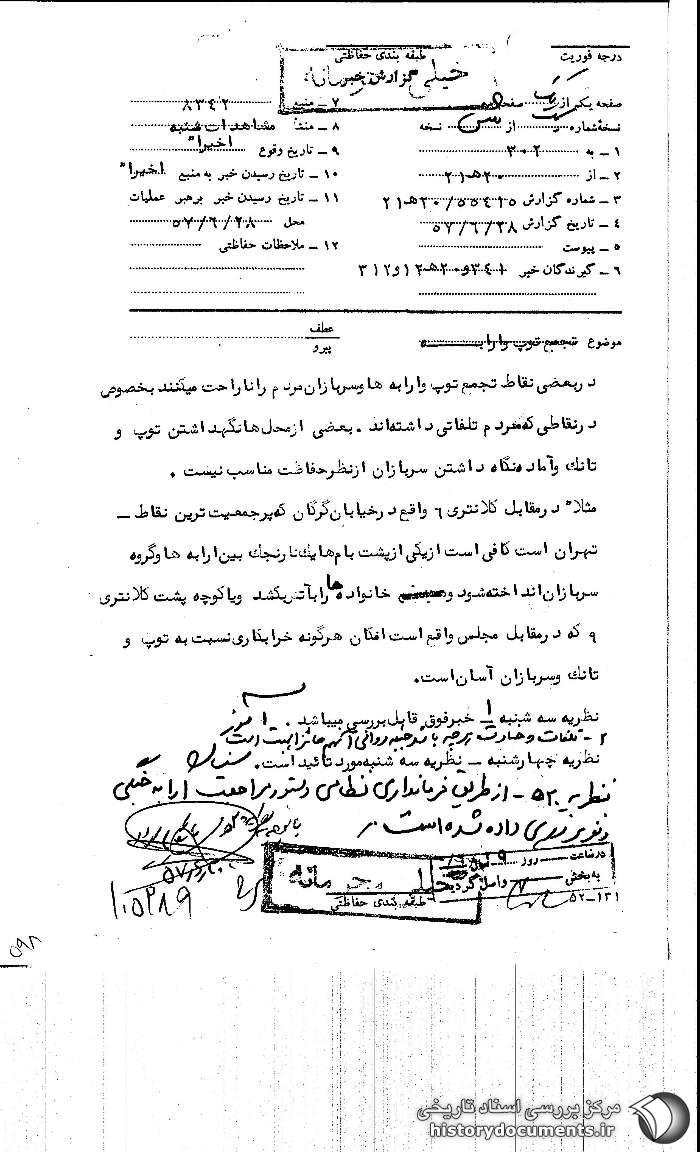 درجه فوریت
طبقه بندی حفاظتی
خیلی محرمانه
گزارش خبر
صفحه یکم از یک صفحه
نسخه شماره از نسخه
۱ ـ به ۳۰۲
۲ ـ از ۲۰ هـ ۲۱
۳ ـ شماره گزارش ۵۵۴۱۵ / ۲۰ هـ ۲۱
۴ ـ تاریخ گزارش ۵۷/۶/۲۸
۵ ـ پیوست
۶ ـ گیرندگان خبر ۳۴۱ و ۲۰ هـ ۱۲ و ۳۱۲
۷ ـ منبع ۸۳۴۲
۸ ـ منشأ مشاهدات شنبه
۹ ـ تاریخ وقوع اخیرا"
۱۰ ـ تاریخ رسیدن خبر به منبع اخیرا"
۱۱ ـ تاریخ رسیدن خبر برهبر عملیات
محل ۵۷/۶/۲۸
۱۲ ـ ملاحظات حفاظتی
موضوع تجمع توپ وارابه
عطف
پیرو
دربعضی نقاط تجمع توپ وارابه هاوسربازان مردم راناراحت میکنند بخصوص
درنقاطی که مردم تلفاتی داشته‌اند . بعضی ازمحل‌هانگهداشتن توپ و
تانك وآماده نگاه داشتن سربازان ازنظرحفاظت مناسب نیست .
مثلا" درمقابل کلانتری ۶ واقع درخیابان گرگان که پرجمعیت ترین نقاط ـ
تهران است کافی است ازیکی ازپشت بام‌هایك نارنجك بین ارابه هاوگروه
سربازان انداخته شود و خانواده ها رابآتش بکشد ویاکوچه پشت کلانتری
۹ که درمقابل مجلس واقع است امکان هرگونه خرابکاری نسبت به توپ و
تانك وسربازان آسان است.
نظریه سه شنبه ۱ خبرفوق قابل بررسی میباشد .
۲ ـ تلفات و خسارات هرچه باشد جنبه روانی آنهم حائز اهمیت است
نظریه چهارشنبه ـ نظریه سه شنبه مورد تائید است.
نظریه ۲۰ هـ ـ از طریق فرمانداری نظامی دستور مراجعت ارابه جنگی
و نفربر زرهی داده شده است .
خیلی محرمانه
طبقه بندی حفاظتی
درساعت روز
به بخش واصل گردید
۵۲-۱۳۱
۱۰۵۲۸۹
۵۹۸
مرکز بررسی اسناد تاریخی
historydocuments.ir